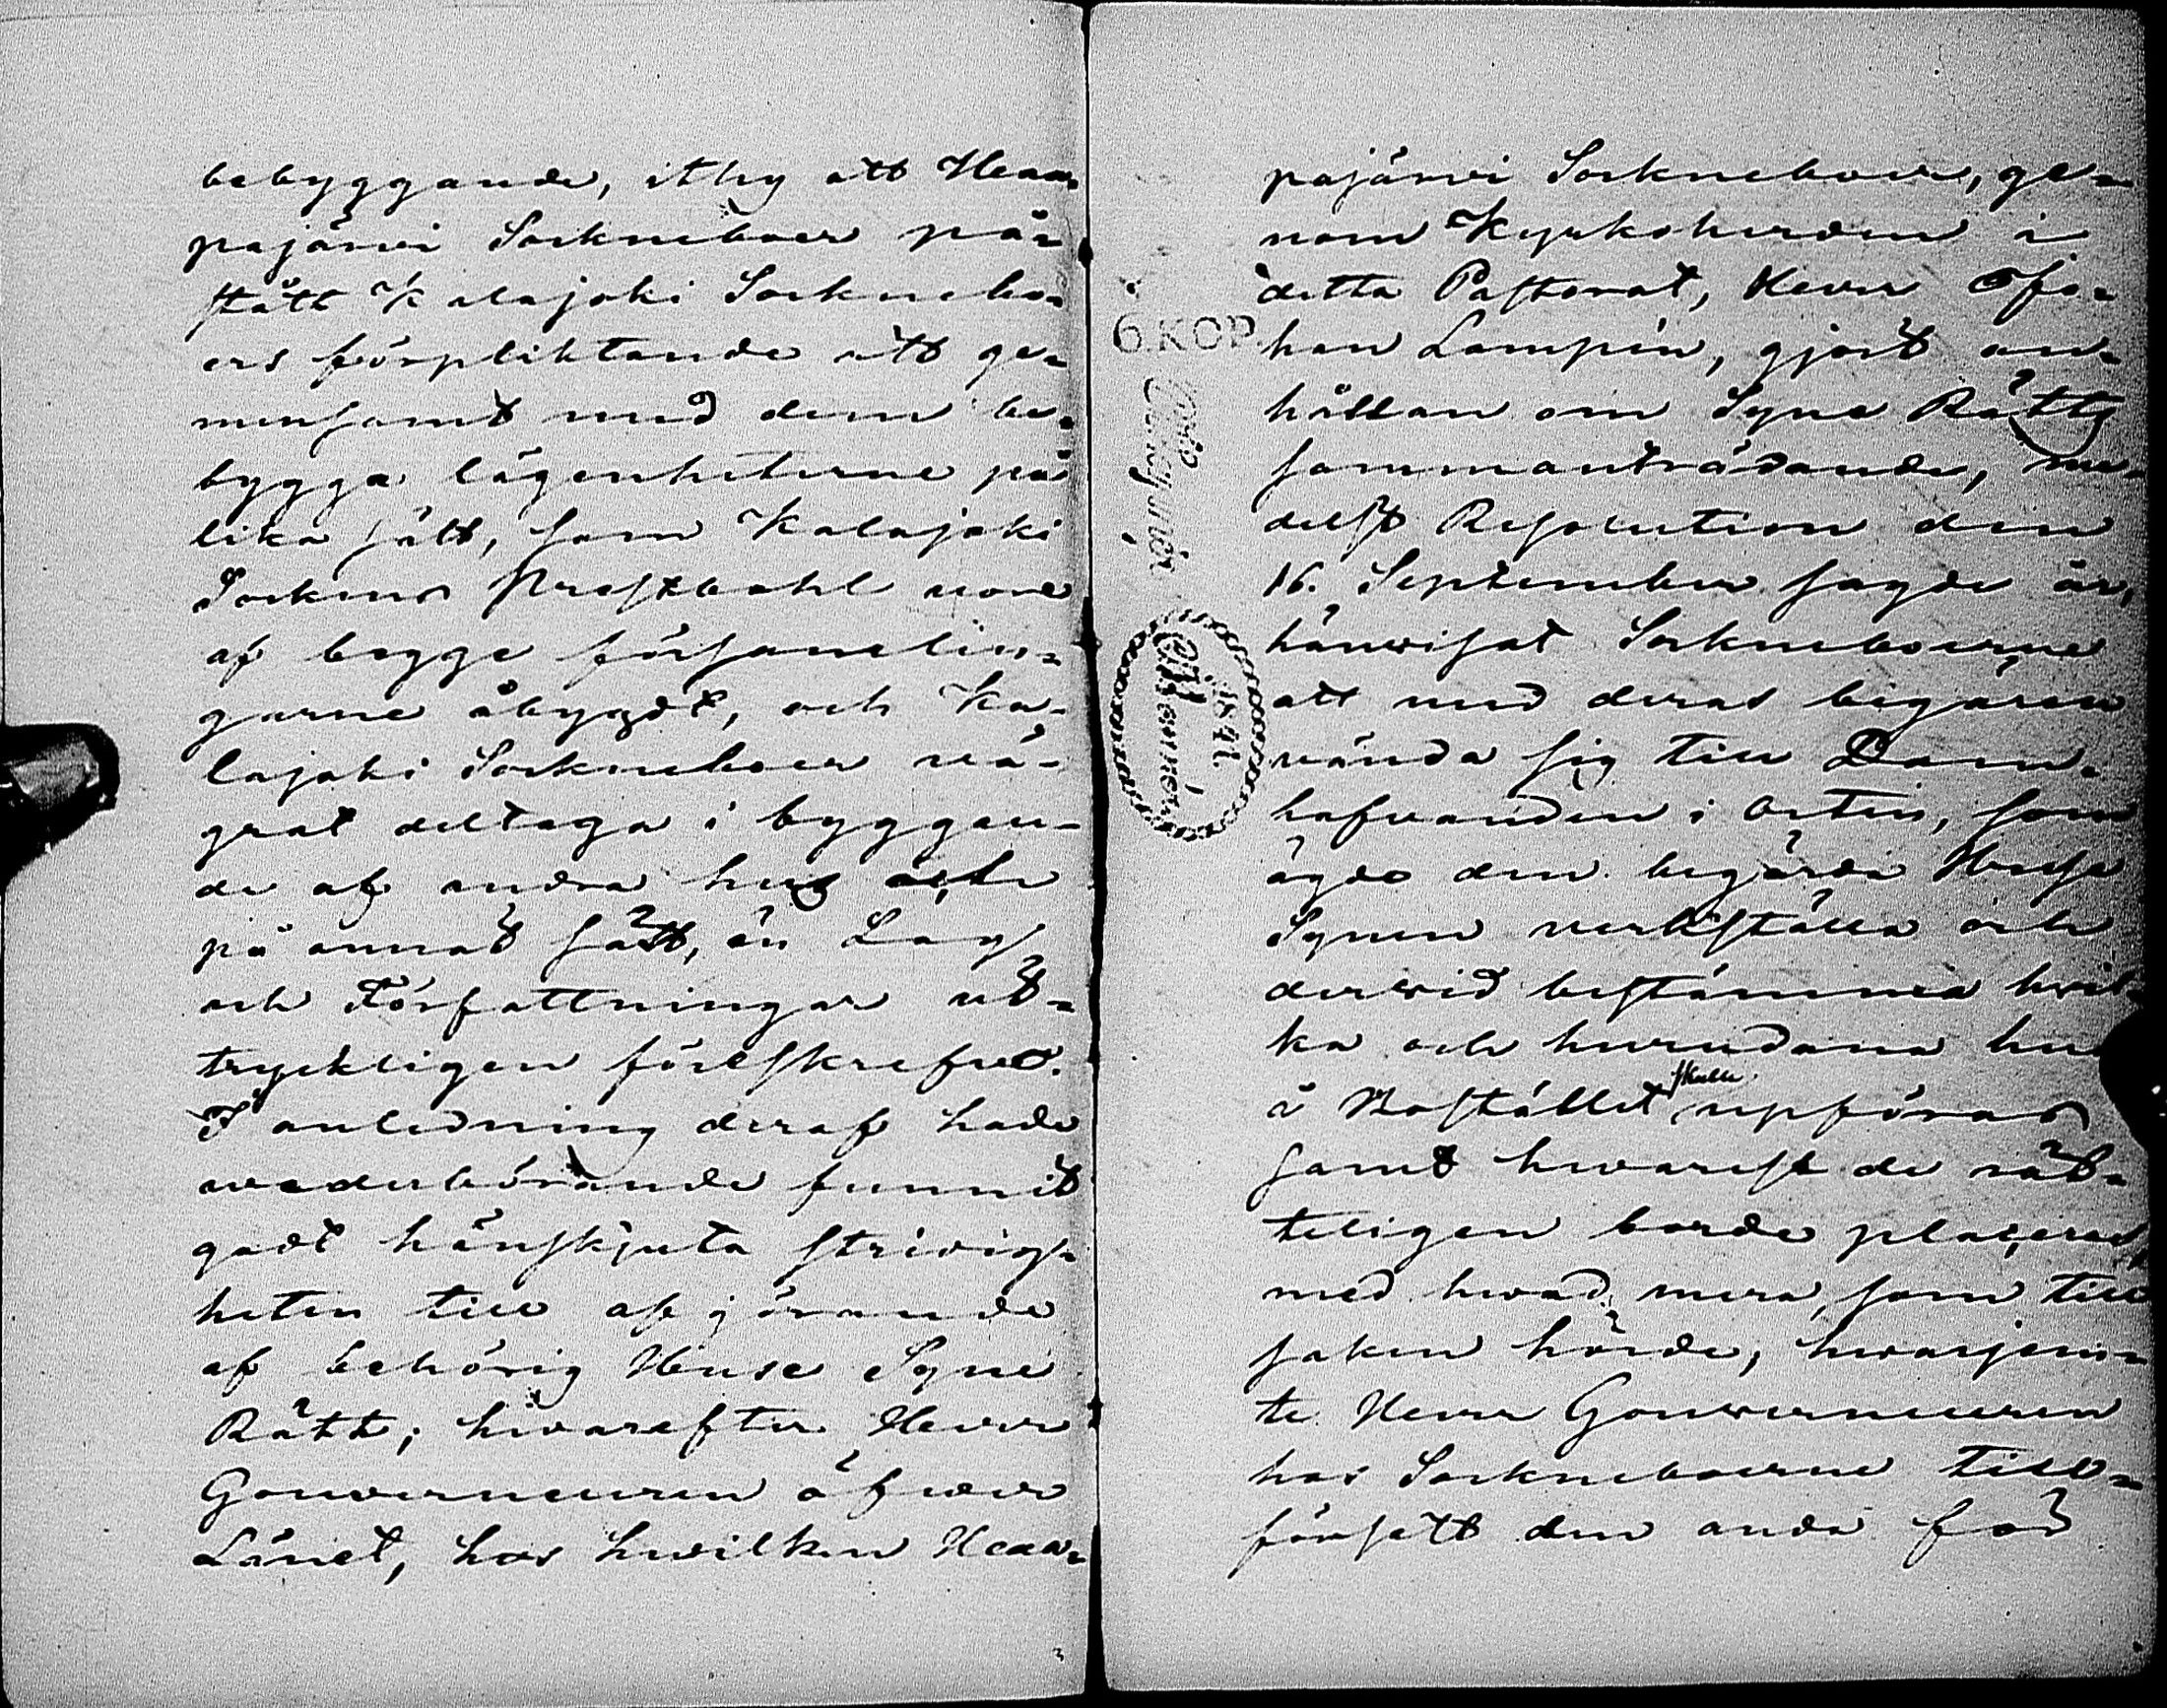 bebyggande, ithy att Haa-
pajärwi Sockneboer på-
stått Kalajoki Sockneboe-
ers förpliktande att ge-
mensamt med dem be-
bygga lägenheterne på
lika sätt, som Kalajoki
Sockens Prestbohl vore
af begge församlin-
garne åbygdt, och Ka-
lajoki Sockneboer vä-
grat deltaga i byggan-
de af andra hus och
på annat sätt, än Lag
och Författningar ut-
tryckligen föreskrefve.
I anledning deraf hade
wederbörande funnit
godt hänskjuta stridig-
heten till afgörande
af behörig Huse Syne
Rätt; hwarefter Herr
Gouverneuren öfwer
Länet, hos hwilken Haa-
pajärwi Sockneboer, ge-
nom Kyrkoherden i
detta Pastorat, Herr Jo-
han Lampén, gjort an-
hållan om Syne Rätts
sammanträdande, me-
delst Resolution den
16. September sagde år,
hänwisat Sockneboerne
att med deras begäran
vända sig till Dom-
hafvanden i orten, som
ägde den begärda Huse
Synen verkställa och
derwid bestämma hwil-
ka och hurudana hus
å Bostället skulle upföras
samt hwarest de rät-
teligen borde placeras,
med hwad mera, som till
saken hörde, hwarjem-
te Herr Gouverneuren
hos Sockneboerne till-
försett den anda för
6.KOP.
1841